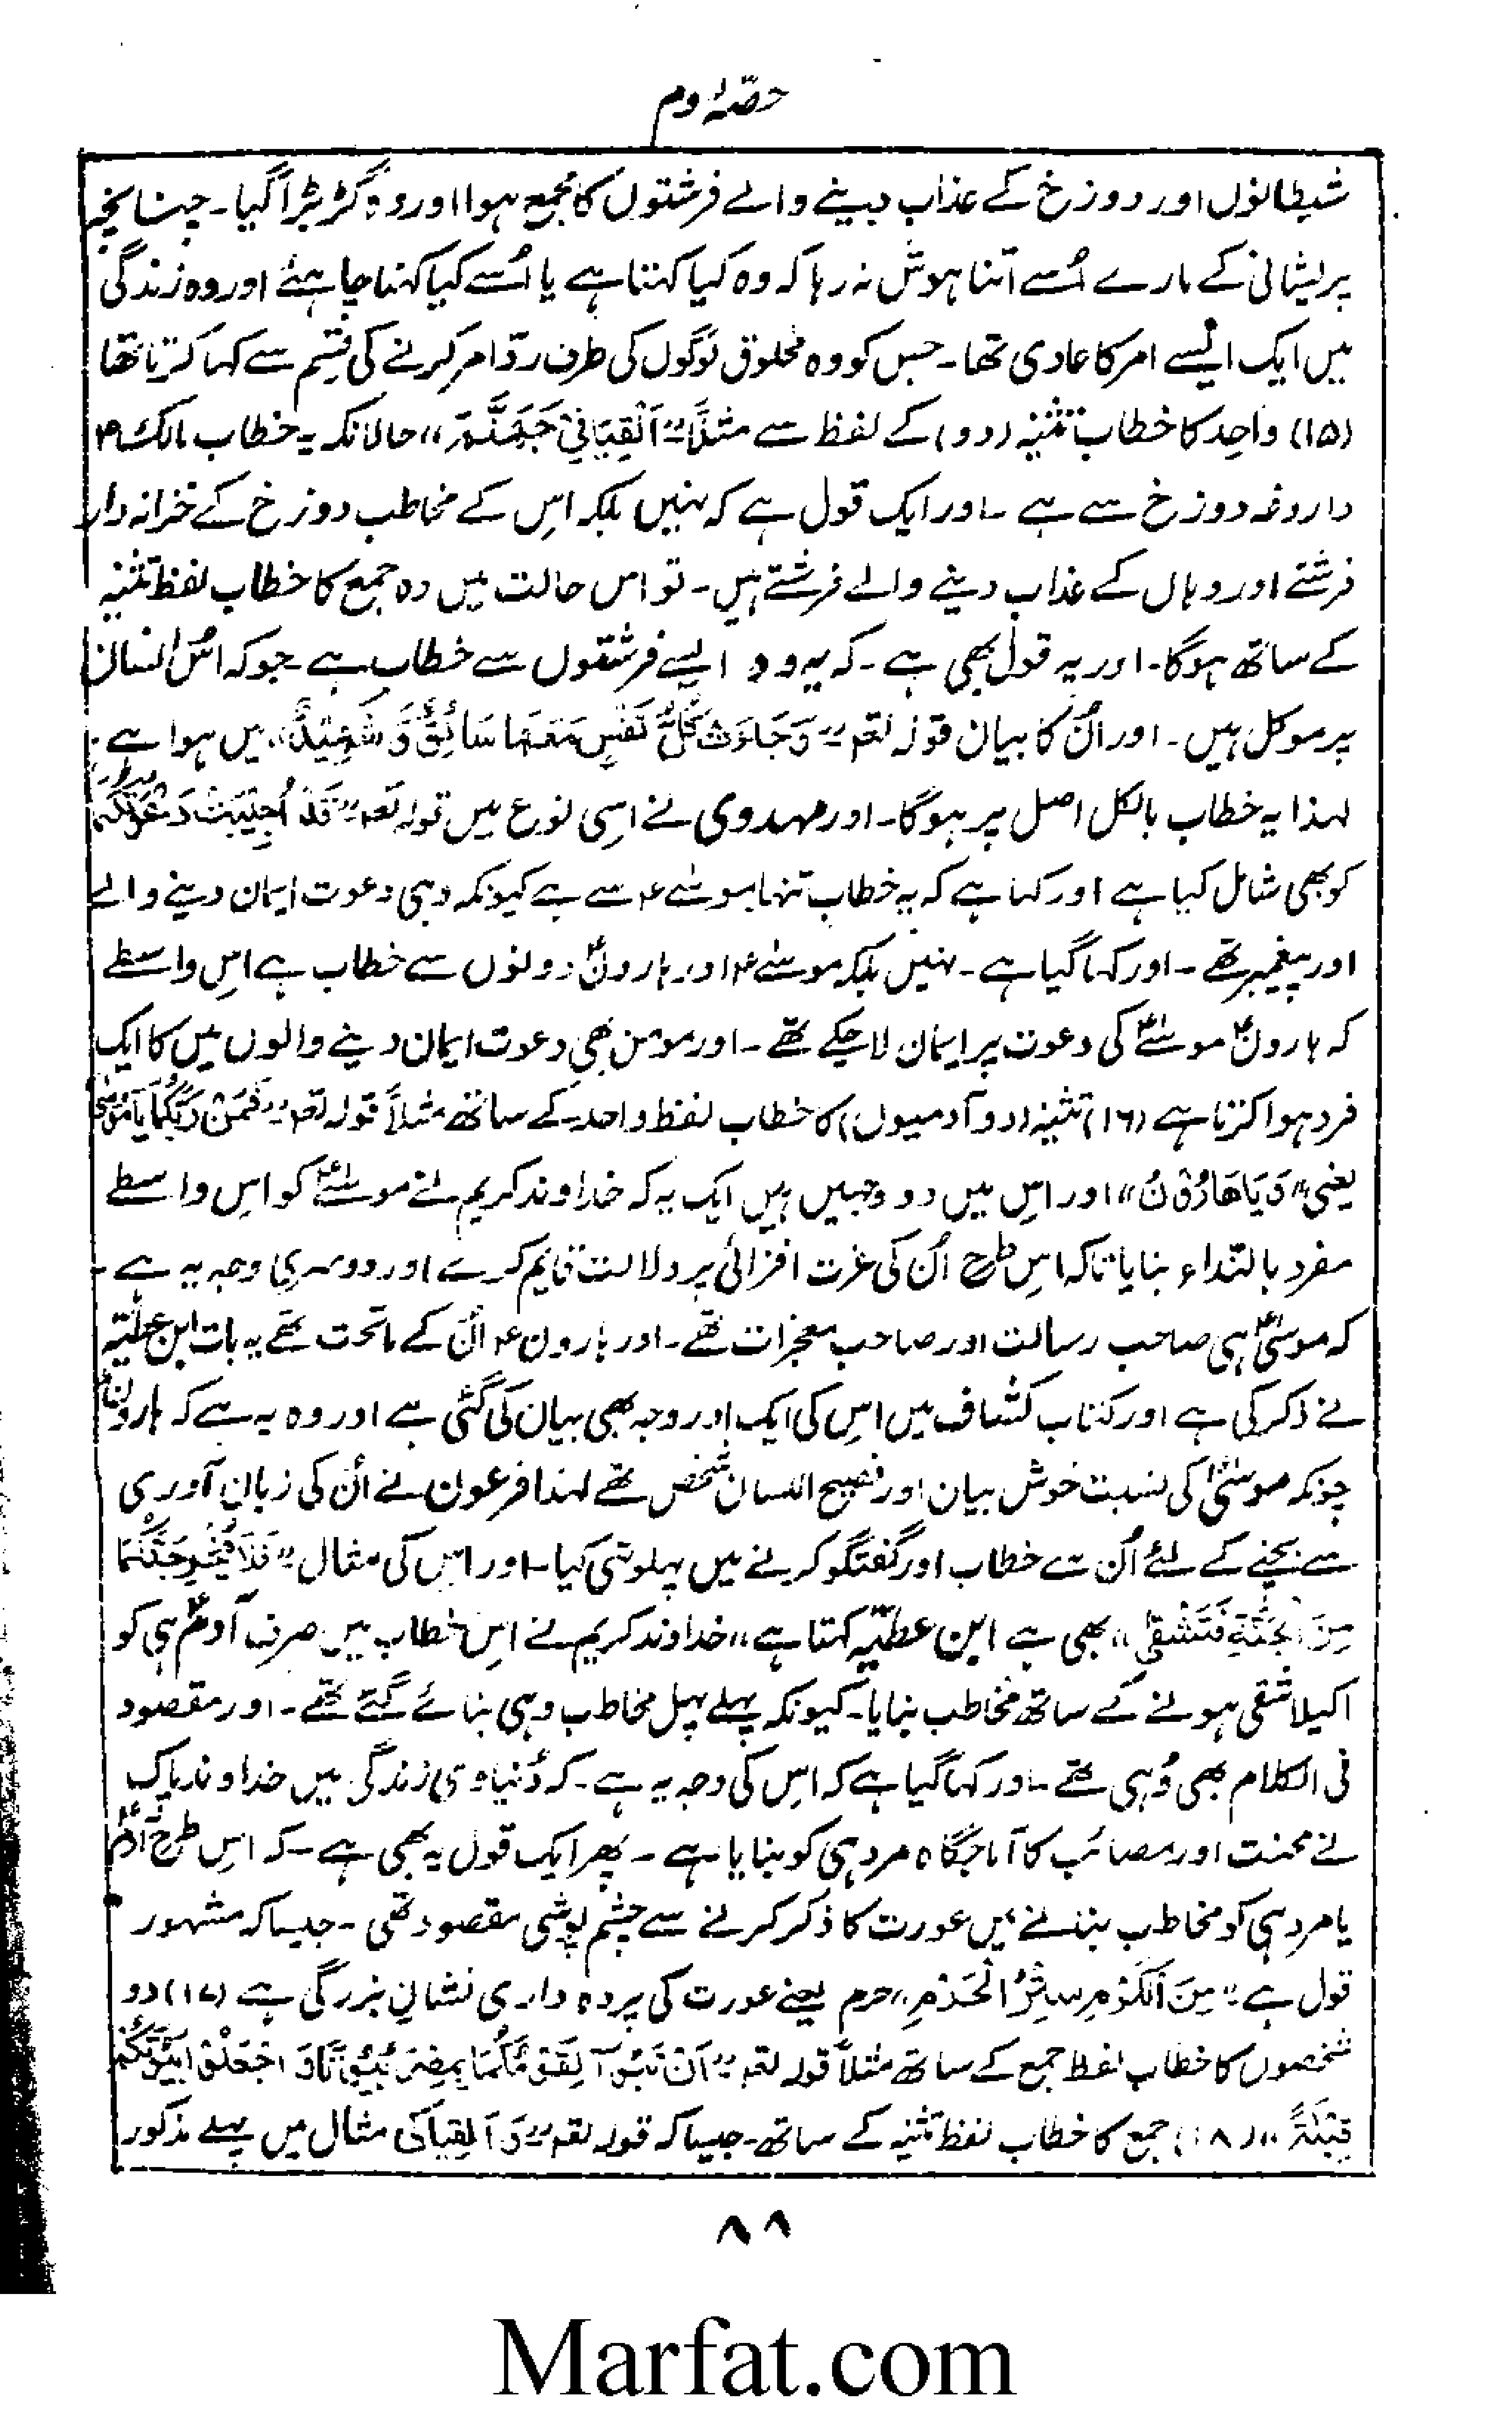 حصّۂ دوم
شیطانوں اور دوزخ کے عذاب دینے والے فرشتوں کا مجمع ہوا اور وہ گڑبڑا گیا۔ چنانچہ
پریشانی کے مارے اُسے اتنا ہوش نہ رہا کہ وہ کیا کہتا ہے یا اُسے کیا کہنا چاہئے اور وہ زندگی
میں ایک ایسے امر کا عادی تھا۔ جس کو وہ مخلوق لوگوں کی طرف ردّ امر کرنے کی قسم سے کہا کرتا تھا
(۱۵) واحد کا خطاب تثنیہ (دو) کے لفظ سے مثلاً "اَلْقِیَا فِیْ جَهَنَّمَ" حالانکہ یہ خطاب مالک ۴
داروغہ دوزخ سے ہے ۔ اور ایک قول ہے کہ نہیں بلکہ اس کے مخاطب دوزخ کے خزانہ دار
فرشتے اور وہاں کے عذاب دینے والے فرشتے ہیں۔ تو اس حالت میں وہ جمع کا خطاب لفظ تثنیہ
کے ساتھ ہوگا۔ اور یہ قول بھی ہے ۔ کہ یہ دو ایسے فرشتوں سے خطاب ہے ۔ جو کہ اُس انسان
پر موکل ہیں۔ اور اُن کا بیان قولہ لقم "وَجَاءَتْ کُلُّ نَفْسٍ مَّعَهَا سَائِقٌ وَّ شَهِیْدٌ" میں ہوا ہے
لہٰذا یہ خطاب بالکل اصل پر ہوگا۔ اور مہدوی نے اسی نوع میں قولہ تعم "قَدْ اُجِیْبَتْ دَعْوَتُکُمَا"
کو بھی شامل کیا ہے اور کہا ہے کہ یہ خطاب تنہا موسٰے ۴ سے ہے کیونکہ وہی دعوت ایمان دینے والے
اور پیغمبر تھے ۔ اور کہا گیا ہے ۔ نہیں بلکہ موسٰے ۴ اور ہارونؑ دونوں سے خطاب ہے اس واسطے
کہ ہارونؑ موسٰےؑ کی دعوت پر ایمان لا چکے تھے ۔ اور مومن بھی دعوت ایمان دینے والوں میں کا ایک
فرد ہوا کرتا ہے (۱۶) تثنیہ (دو آدمیوں) کا خطاب لفظ واحد کے ساتھ مثلاً قولہ لقم "فَمَنْ رَّبُّکُمَا یَا مُوْسٰی"
یعنی "وَیَا هَارُوْنُ" اور اس میں دو وجہیں ہیں ایک یہ کہ خداوند کریم نے موسٰےؑ کو اس واسطے
مفرد بالنّداء بنایا تاکہ اس طرح اُن کی عزت افزائی پر دلالت قایم کرے اور دوسری وجہ یہ ہے ۔
کہ موسٰیؑ ہی صاحب رسالت اور صاحب معجزات تھے ۔ اور ہارون ۴ اُن کے ماتحت تھے یہ بات ابن عطیّہ
نے ذکر کی ہے اور کتاب کشاف میں اس کی ایک اور وجہ بھی بیان کی گئی ہے اور وہ یہ ہے کہ ہارونؑ
چونکہ موسٰیؑ کی نسبت خوش بیان اور فصیح اللسان شخص تھے لہٰذا فرعون نے اُن کی زبان آوری
سے بچنے کے لئے اُن سے خطاب اور گفتگو کرنے میں پہلوتہی کیا۔ اور اس کی مثال "فَلَا یُخْرِجَنَّکُمَا
مِنَ الْجَنَّةِ فَتَشْقٰی" بھی ہے ابن عطیّہ کہتا ہے "خداوند کریم نے اس خطاب میں صرف آدمؑ ہی کو
اکیلا شقی ہونے کے ساتھ مخاطب بنایا۔ کیونکہ پہلے پہل مخاطب وہی بنائے گئے تھے ۔ اور مقصود
فی الکلام بھی وُہی تھے ۔ اور کہا گیا ہے کہ اس کی وجہ یہ ہے ۔ کہ دُنیاوی زندگی میں خداوند پاک
نے محنت اور مصائب کا آماجگاہ مرد ہی کو بنایا ہے ۔ پھر ایک قول یہ بھی ہے ۔ کہ اس طرح آدمؑ
یا مرد ہی کو مخاطب بننے میں عورت کا ذکر کرنے سے چشم پوشی مقصود تھی ۔ جیسا کہ مشہور
قول ہے "مِنَ الْکَرَمِ سِتْرُ الْحَرَمِ" حرم یعنے عورت کی پردہ داری نشان بزرگی ہے (۱۷) دو
شخصوں کا خطاب لفظ جمع کے ساتھ مثلاً قولہ لقم "اَنْ تَبَوَّآ لِقَوْمِکُمَا بِمِصْرَ بُیُوْتًا وَّ اجْعَلُوْا بُیُوْتَکُمْ
قِبْلَةً" (۱۸) جمع کا خطاب لفظ تثنیہ کے ساتھ ۔ جیسا کہ قولہ لقم "وَ اَلْقِیَا کی مثال میں پہلے مذکور
۸۸
Marfat.com